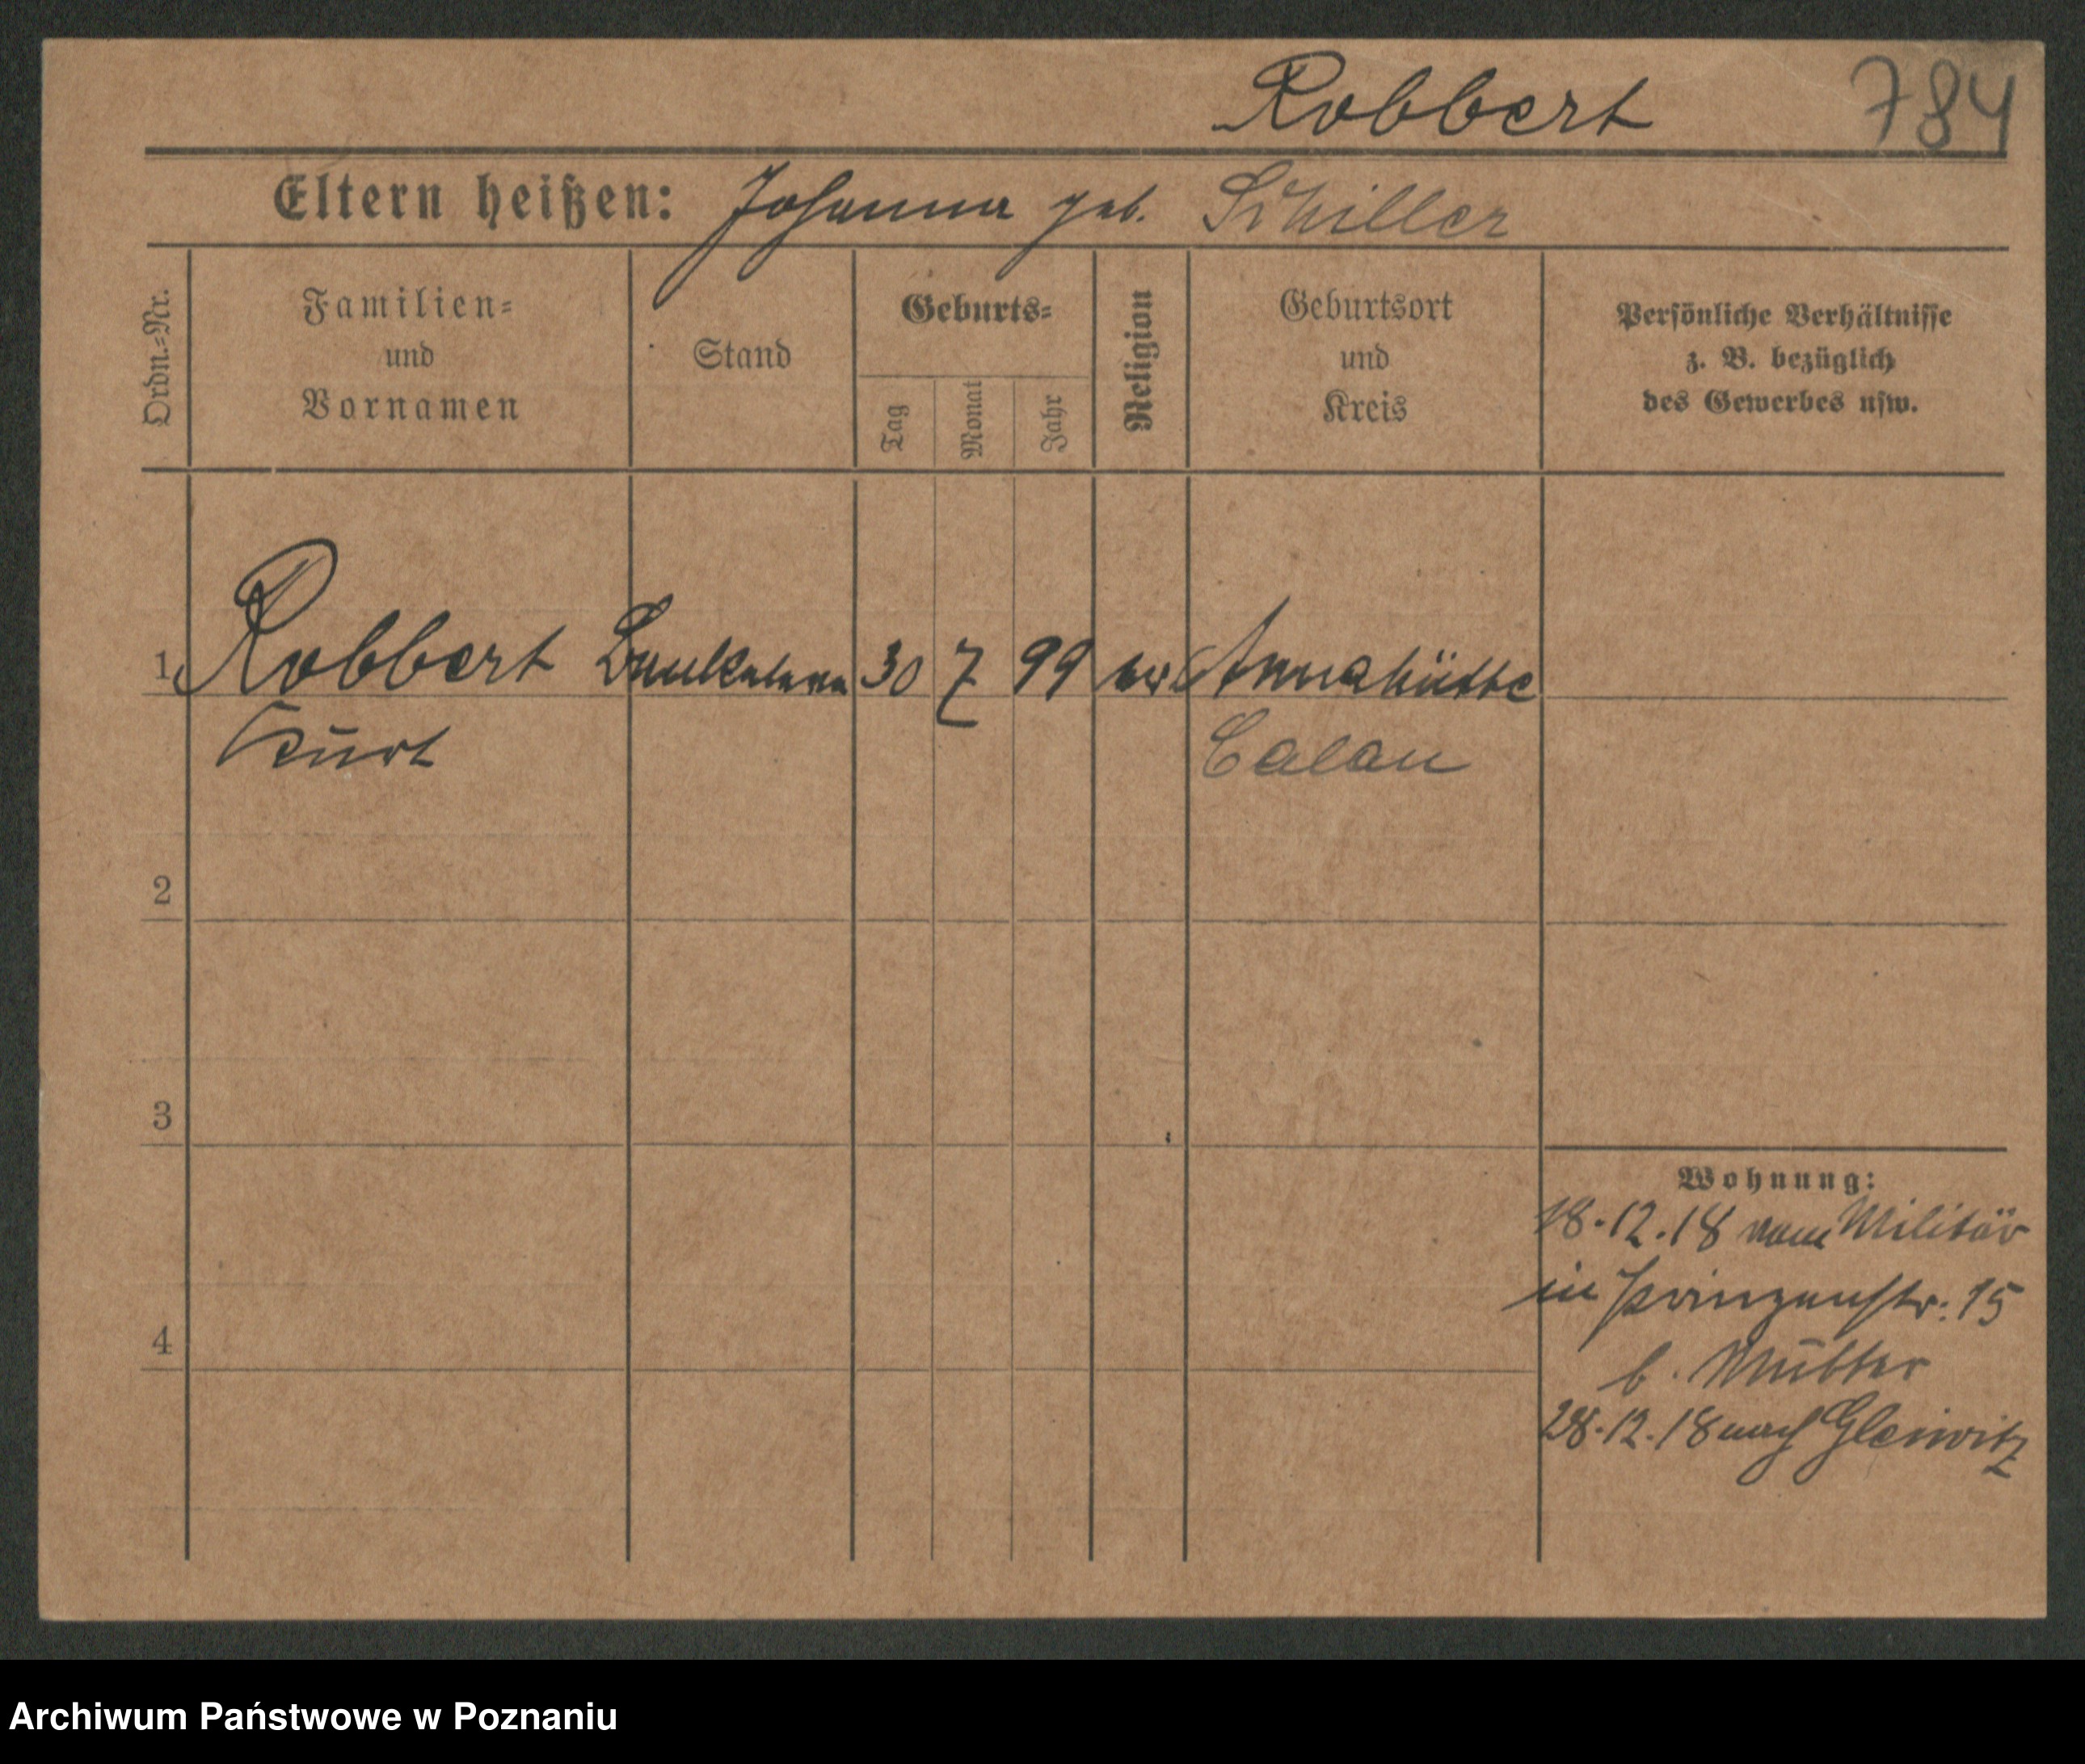 Robbert 784
Eltern heißen: Johanna geb. Schiller
Ordn.=Nr.
Familien=
und
Vornamen
Stand
Geburts=
Tag
Monat
Jahr
Religion
Geburtsort
und
Kreis
Persönliche Verhältnisse
z. B. bezüglich
des Gewerbes usw.
1 Robbert 30 7 99 ev Annahütte
Kurt Calau
2
3
Wohnung:
18.12.18 vom Militär
in Prinzenstr. 15
4
b. Mutter
28.12.18 nach Gleiwitz
Archiwum Państwowe w Poznaniu